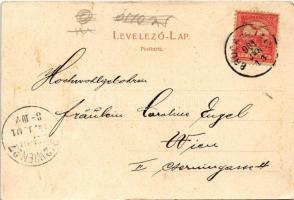 LEVELEZŐ-LAP.
Postkarte.
Hochwohlgeboren
Fräulein Caroline Engel
Wien
II Czerningasse 4